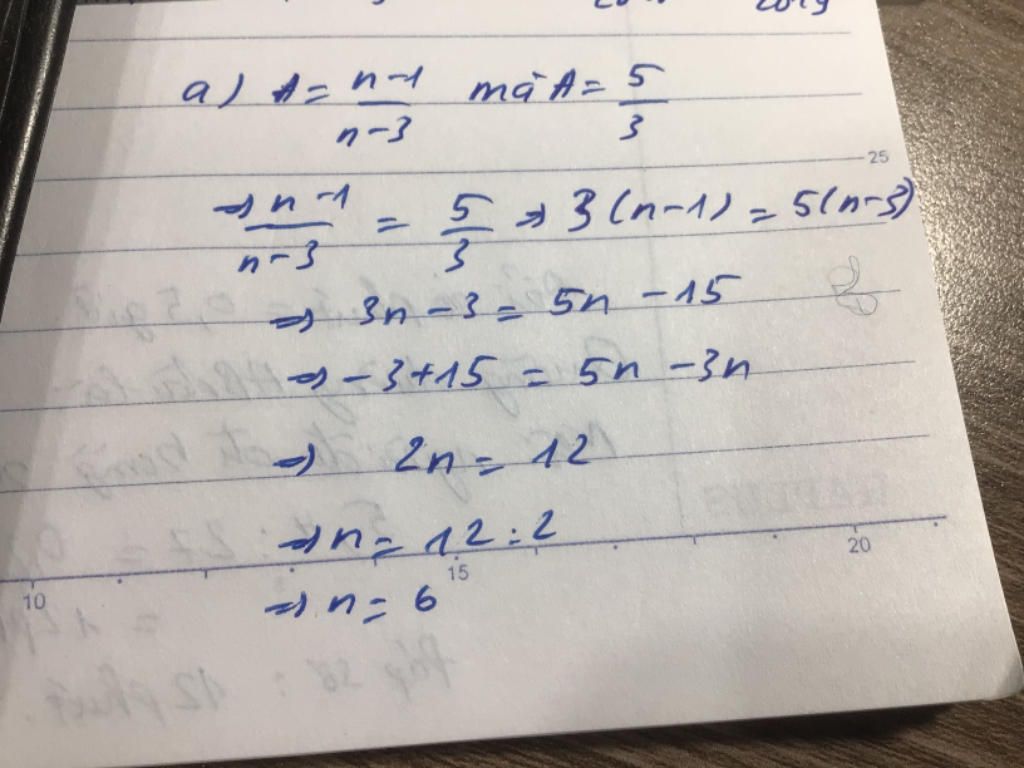 a) A = n-1/n-3 mà A = 5/3
25
=> n-1/n-3 = 5/3 => 3(n-1) = 5(n-3)
=> 3n - 3 = 5n - 15
=> -3+15 = 5n - 3n
=> 2n = 12
=> n = 12:2
10 15 20
=> n = 6